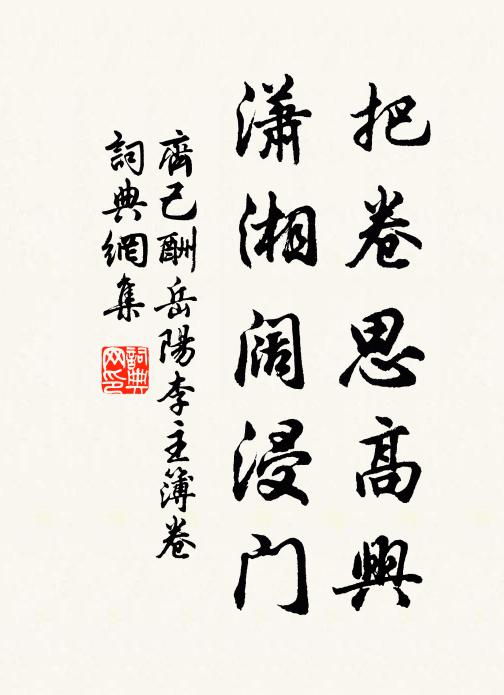 把卷思高興
瀟湘阔浸门
齊己酬岳陽李主簿卷
詞典網集
詞典网印